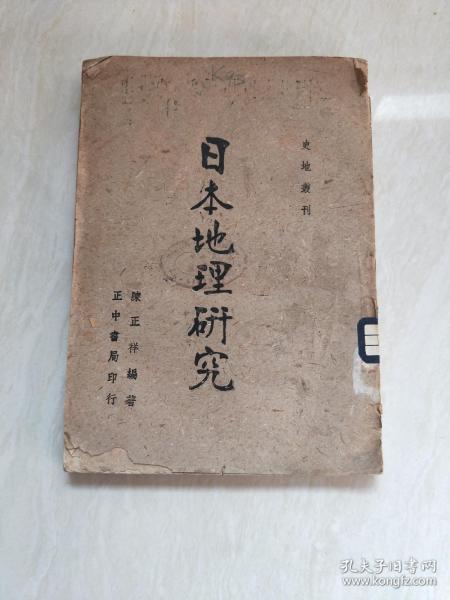 K95
史地叢刊
日本地理研究
陳正祥編著
正中書局印行
孔夫子旧书网
www.kongfz.com